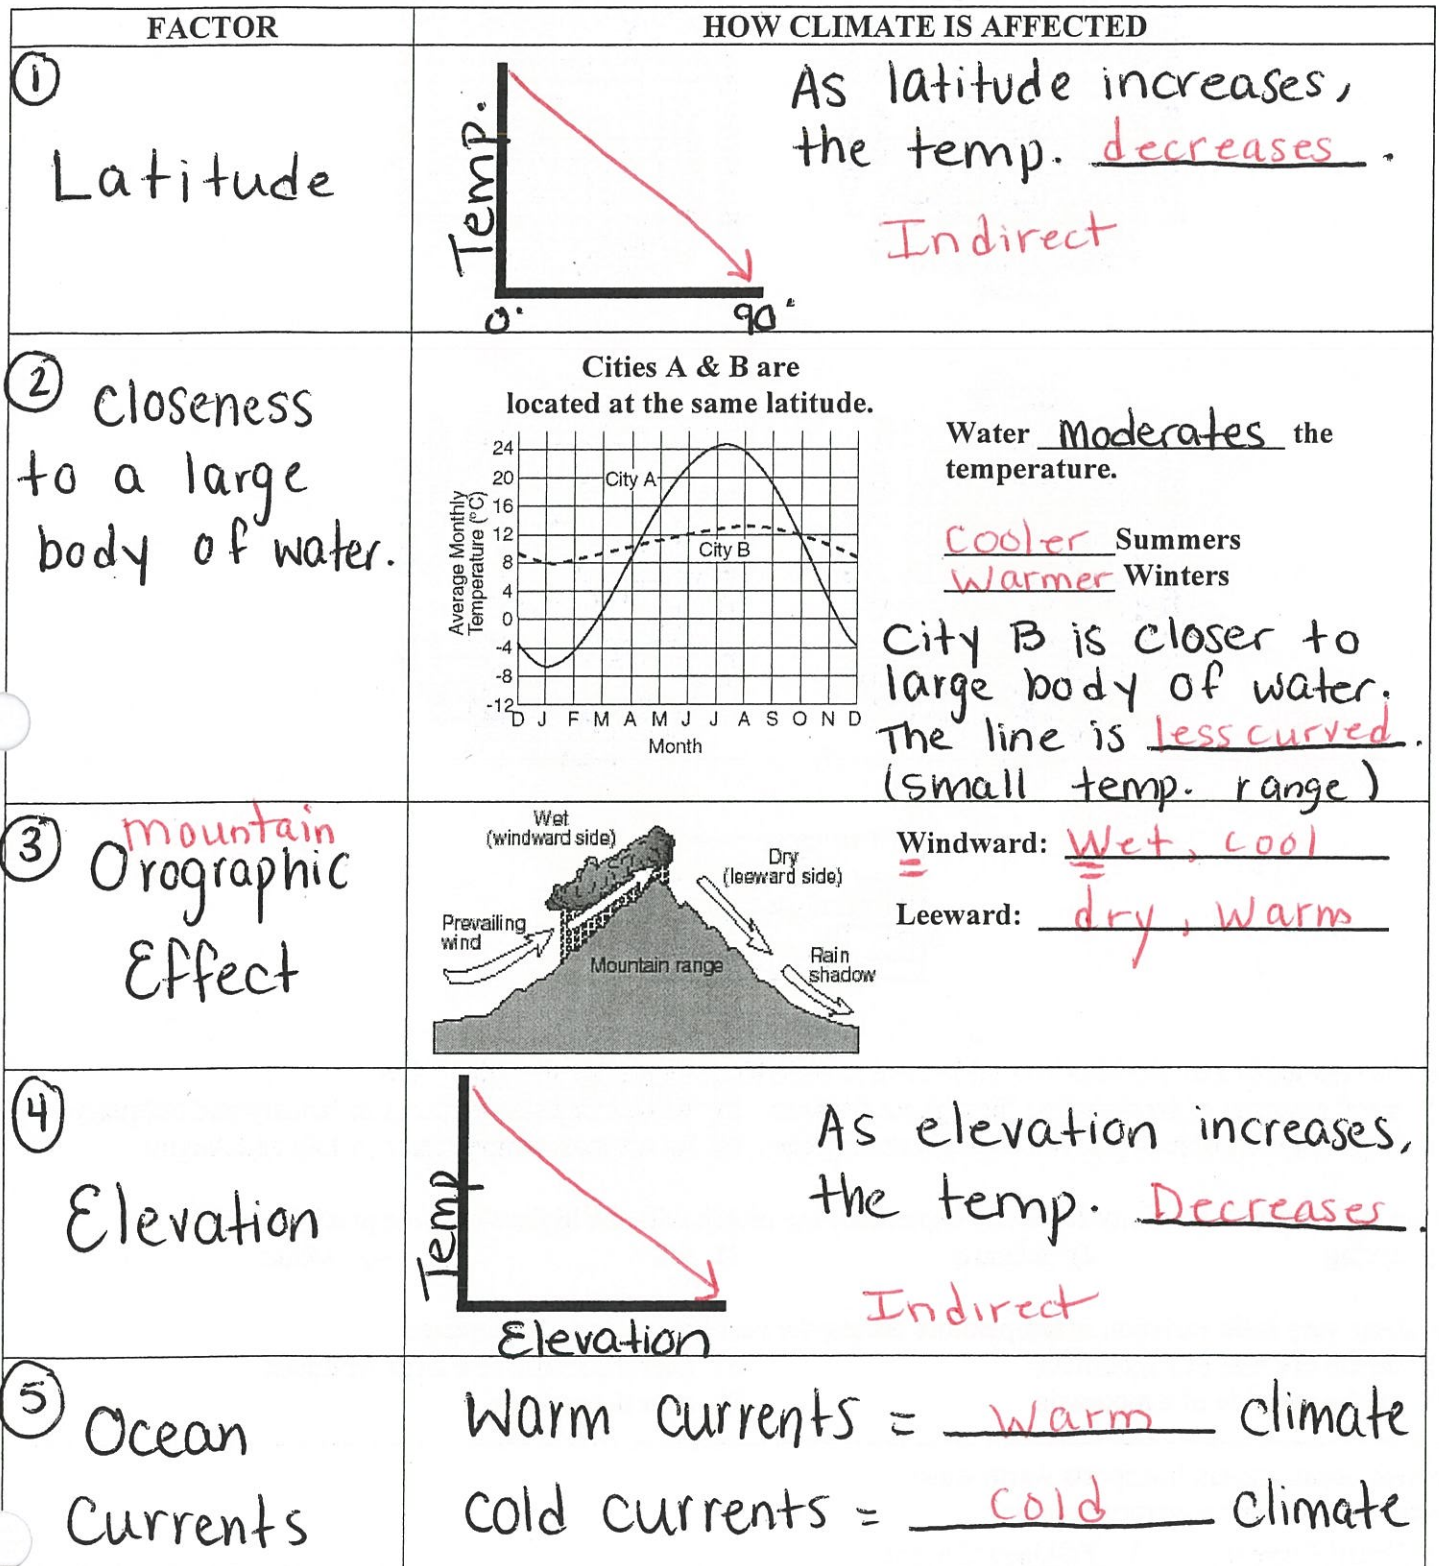 FACTOR
HOW CLIMATE IS AFFECTED
1
Latitude
Temp.
0°
90°
As latitude increases,
the temp. decreases.
Indirect
2 Closeness
to a large
body of water.
Cities A & B are
located at the same latitude.
Average Monthly
Temperature (°C)
24
20
16
12
8
4
0
-4
-8
-12
City A
City B
D J F M A M J J A S O N D
Month
Water Moderates the
temperature.
Cooler Summers
Warmer Winters
City B is closer to
large body of water.
The line is less curved.
(small temp. range)
3 mountain
Orographic
Effect
Wet
(windward side)
Dry
(leeward side)
Prevailing
wind
Mountain range
Rain
shadow
Windward: Wet, cool
Leeward: dry, warm
4
Elevation
Temp
Elevation
As elevation increases,
the temp. Decreases.
Indirect
5 Ocean
Currents
Warm currents = warm climate
Cold currents = cold climate